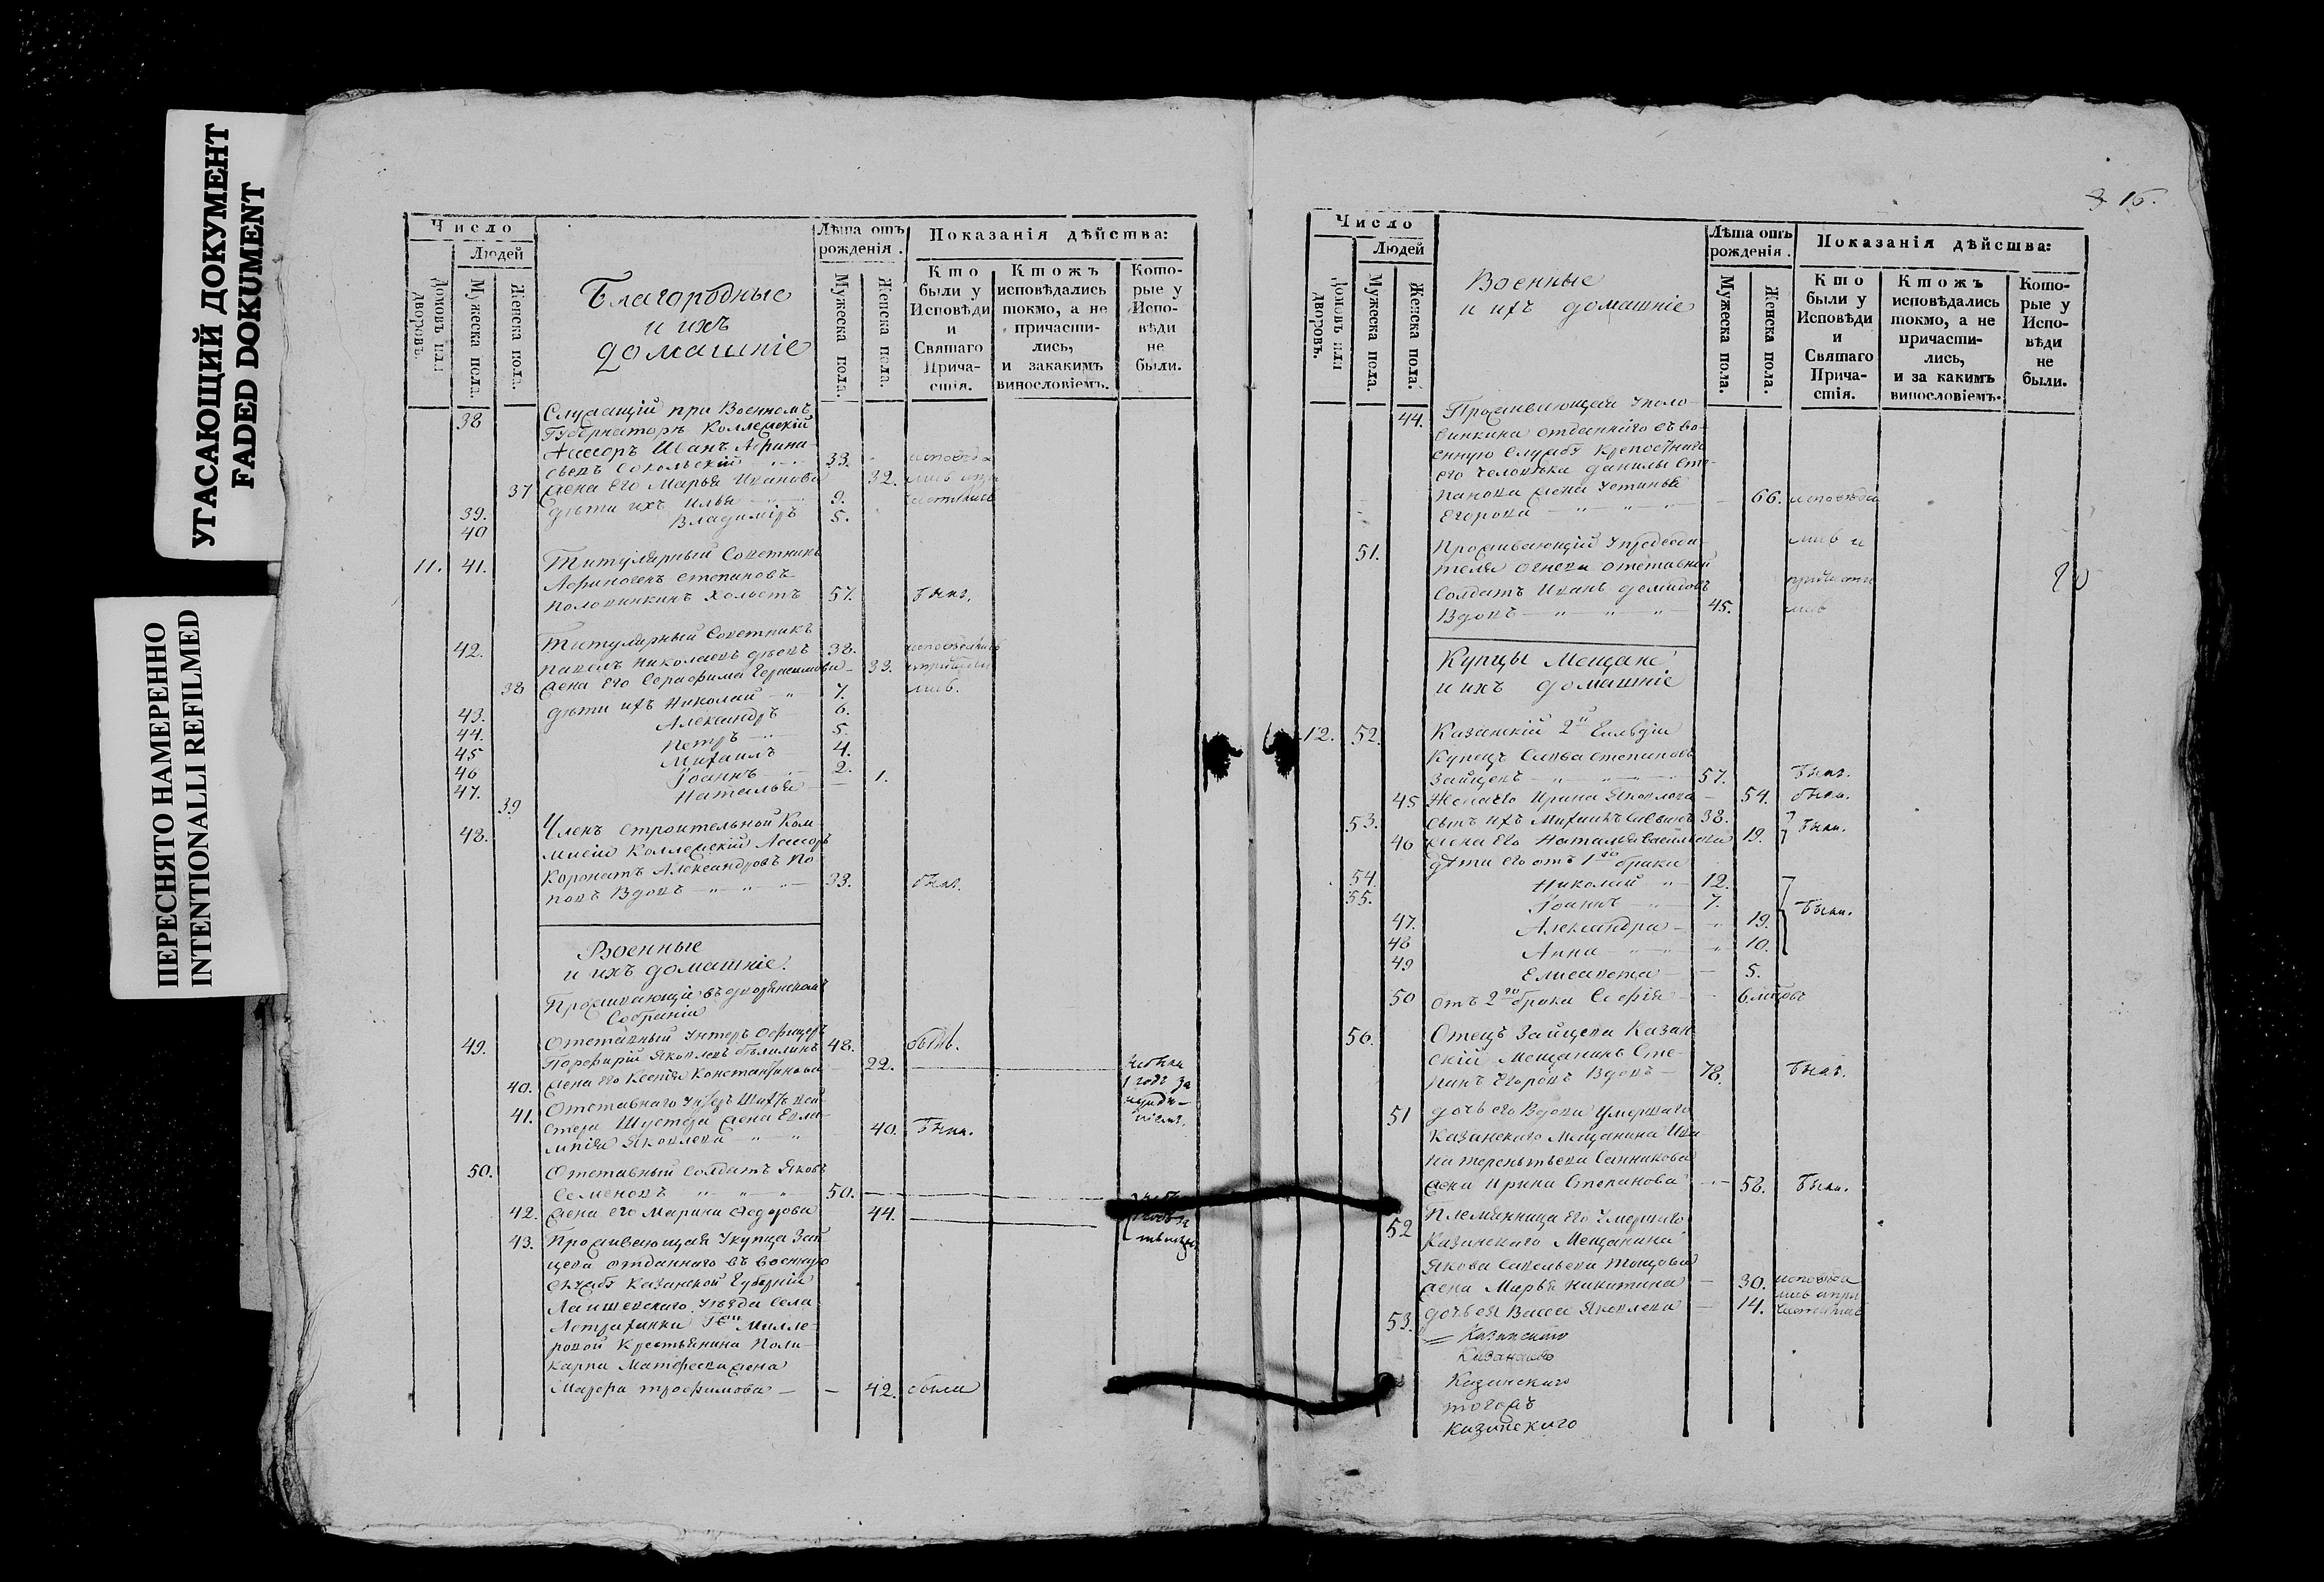 УГАСАЮЩИЙ ДОКУМЕНТ
FADED DOKUMENT
ПЕРЕСНЯТО НАМЕРЕННО
INTENTIONALLI REFILMED
Число
Людей
Домовъ или дворовъ.
Мужеска пола.
Женска пола.
Благородные
и ихъ
домашніе
Лѣта отъ
рожденія.
Мужеска пола.
Женска пола.
Показанія дѣйства:
Кто
были у
Исповѣди
и
Святаго
Прича-
стія.
Ктожъ
исповѣдались
токмо, а не
причасти-
лись,
и закакимъ
винословіемъ.
Кото-
рые у
Испо-
вѣди
не
были.
38 Служащій при Военномъ
Губернаторѣ Коллежскій
Ассесоръ Иванъ
Сокольскій 33.
37 жена его Марья Иванова 32.
39. дѣти ихъ Илья 9.
40 Владимiръ 5.
11. 41. Титулярный Советникъ
Афиногенъ Степановъ
Половинкинъ Холостъ 57. былъ.
42. Титулярный Советникъ
Павелъ Николаевъ 38.
38 жена его Серафима Герасимова 33.
43. дѣти ихъ Николай 7.
44. Александръ 6.
45 Петръ 5.
46 Михаилъ 4.
47. Іоаннъ 2.
39 Наталья 1.
48. Членъ строительной Ком-
мисіи Коллежскій Ассесоръ
Коронатъ Александровъ По
повъ Вдовъ 33. былъ.
Военные
и ихъ домашніе.
Проживающіе въ дворянскомъ
Собраніи
49. Отставный Унтеръ Офицеръ
Порфирій Яковлевъ 48. былъ.
40. жена его Ксенія Константинова 22.
41. Отставнаго
жена Евла-
мпія Яковлева 40. Была.
50. Отставный Солдатъ Яковъ
Семеновъ 50.
42. жена его Марина Федорова 44.
43. Проживающая у купца Зай
цева отданнаго въ военную
службу Казанской Губерніи
Лаишевскаго уѣзда села
Астраханки Гжи Милле-
ровой Крестьянина Поли-
карпа Матфеева жена
Марфа Трофимова 42. была
16.
Число
Людей
Домовъ или дворовъ.
Мужеска пола.
Женска пола.
Военные
и ихъ домашніе
Лѣта отъ
рожденія.
Мужеска пола.
Женска пола.
Показанія дѣйства:
Кто
были у
Исповѣди
и
Святаго
Прича-
стія.
Ктожъ
исповѣдались
токмо, а не
причасти-
лись,
и за какимъ
винословіемъ.
Кото-
рые у
Испо-
вѣди
не
были.
44. Проживающая у Поло-
винкина отданнаго въ во-
енную службу крепостнаго
его человѣка Данилы Сте-
панова жена Устинья
Егорова 66. исповѣда
51. Проживающій у
отставной
Солдатъ Иванъ Демидовъ
Вдовъ 45.
Купцы Мещане
и ихъ домашніе
12. 52. Казанскій 2й Гильдіи
Купецъ Савва Степановъ
Зайцевъ 57. былъ.
45 Жена его Ирина Яковлева 54. была.
53. Сынъ ихъ Михаилъ Саввинъ 38.
46 жена его Наталья Васильева 19. были.
дѣти его отъ 1го брака
54. Николай 12.
55. Іоаннъ 7.
47. Александра 19. были.
48 Анна 10.
49 Елисавета 5.
50 отъ 2го брака Софія
56. Отецъ Зайцева Казан-
скій Мещанинъ Сте-
панъ Егоровъ Вдовъ 78. былъ.
51 дочь его Вдова умершаго
Казанскаго Мещанина Ива
на Терентьева Санникова
жена Ирина Степанова 58. Была.
52 Племянница его умершаго
Казанскаго Мещанина
Якова Савельева
жена Марья Никитина 30. исповѣда
53. дочь ея Васса Яковлева 14.
Казанскаго
Казанскаго
Казанскаго
тогожъ
Казанскаго